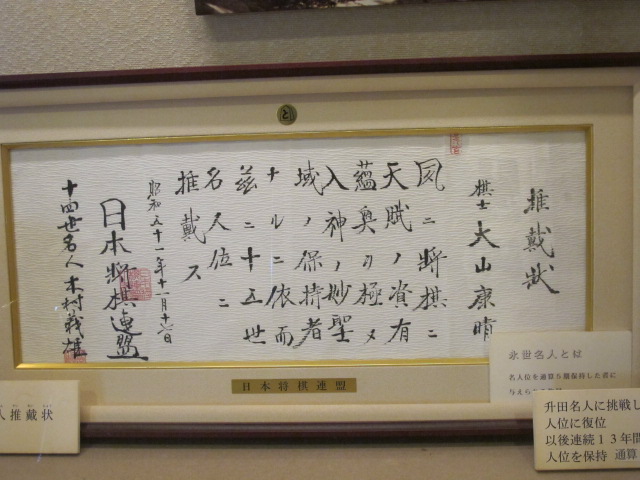 推戴状
棋士 大山康晴
夙ニ将棋ニ
天賦ノ資有
蘊奥ヲ極メ
入神ノ妙聖
域ノ保持者
ナルニ依而
茲ニ十五世
名人位ニ
推戴ス
昭和五十一年十一月十七日
日本将棋連盟
十四世名人木村義雄
と
日本将棋連盟
人推戴状
永世名人とは
名人位を通算5期保持した者に
与えられる
升田名人に挑戦し
人位に復位
以後連続13年間
人位を保持 通算